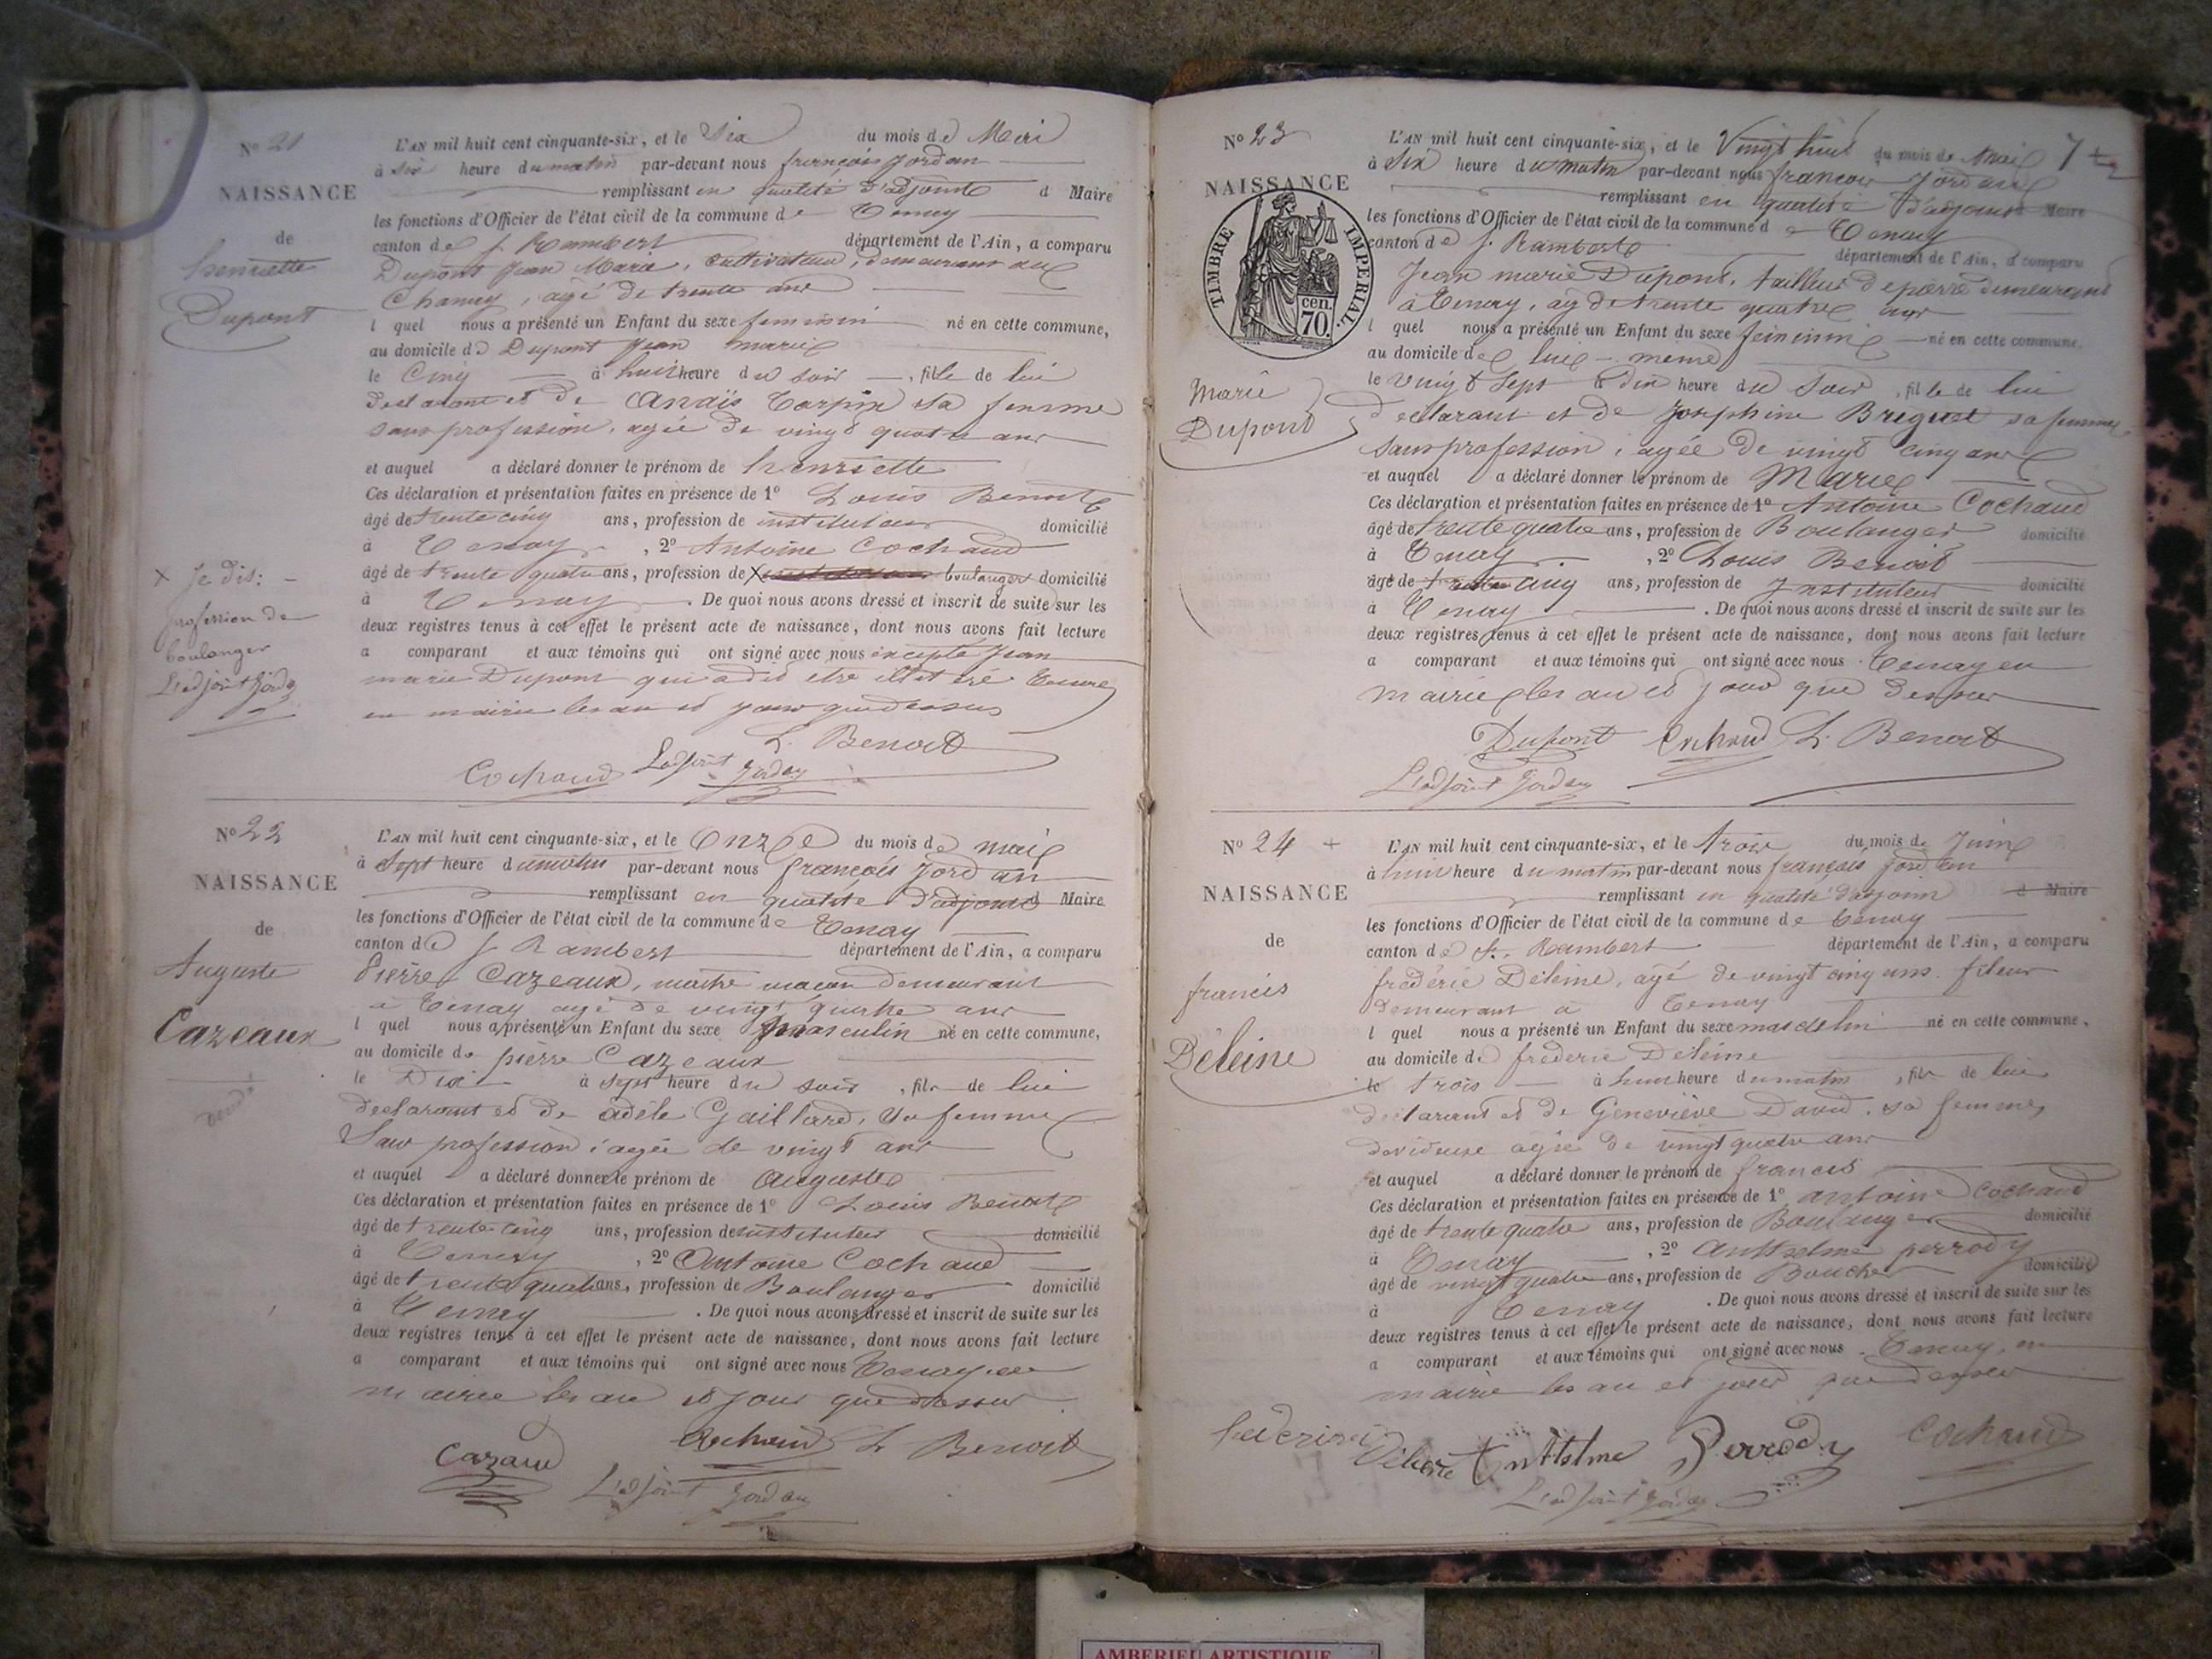 N° 21
NAISSANCE
de
henriette
Dupont
L'AN mil huit cent cinquante-six, et le Six du mois de Mai
à six heure du matin par-devant nous françois Jordan
remplissant en qualité d'adjoint d Maire
les fonctions d'Officier de l'état civil de la commune de Tenay
canton de St Rambert département de l'Ain, a comparu
Dupont Jean Marie, cultivateur, demeurant au
Chanay, agé de trente ans
l quel nous a présenté un Enfant du sexe feminin né en cette commune,
au domicile de Dupont Jean marie
le Cinq à huit heure du soir, fille de lui
declarant et de Anaïs Carpin sa femme
sans profession, agée de vingt quatre ans
et auquel a déclaré donner le prénom de henriette
Ces déclaration et présentation faites en présence de 1° Louis Benoit
âgé de trente cinq ans, profession de instituteur domicilié
à Tenay, 2° Antoine Cochaud
âgé de trente quatre ans, profession de X boulanger domicilié
à Tenay. De quoi nous avons dressé et inscrit de suite sur les
deux registres tenus à cet effet le présent acte de naissance, dont nous avons fait lecture
a comparant et aux témoins qui ont signé avec nous excepté Jean
marie Dupont qui a dit etre illétéré Tenay
en mairie les an et jour que dessus
X Je dis:
profession de
boulanger
L'adjoint Jordan
L. Benoit
Cochaud L'adjoint Jordan
N° 22
NAISSANCE
de
Auguste
Cazeaux
L'AN mil huit cent cinquante-six, et le Onze du mois de mai
à Sept heure du matin par-devant nous françois Jordan
remplissant en qualité d'adjoint d Maire
les fonctions d'Officier de l'état civil de la commune de Tenay
canton de St Rambert département de l'Ain, a comparu
Pierre Cazeaux, maitre maçon demeurant
à Tenay agé de vingt quatre ans
l quel nous a présenté un Enfant du sexe masculin né en cette commune,
au domicile de pierre Cazeaux
le Dix à sept heure du soir, fils de lui
declarant et de adèle Gaillard, sa femme
Sans profession, agée de vingt ans
et auquel a déclaré donner le prénom de auguste
Ces déclaration et présentation faites en présence de 1° Louis Benoit
âgé de trente cinq ans, profession de instituteur domicilié
à Tenay, 2° Antoine Cochaud
âgé de trente quatre ans, profession de Boulanger domicilié
à Tenay. De quoi nous avons dressé et inscrit de suite sur les
deux registres tenus à cet effet le présent acte de naissance, dont nous avons fait lecture
a comparant et aux témoins qui ont signé avec nous Tenay en
mairie les an et jour que dessus
Cazaux Cochaud L. Benoit
L'adjoint Jordan
7
N° 23
NAISSANCE
TIMBRE IMPERIAL
70 cen.
Marie
Dupont
L'AN mil huit cent cinquante-six, et le Vingt huit du mois de Mai
à Six heure du matin par-devant nous françois Jordan
remplissant en qualité d'adjoint Maire
les fonctions d'Officier de l'état civil de la commune d e Tenay
canton de St Rambert département de l'Ain, a comparu
Jean marie Dupont, tailleur de pierre demeurant
à Tenay, agé de trente quatre ans
l quel nous a présenté un Enfant du sexe féminin né en cette commune,
au domicile de lui-même
le vingt sept à dix heure du soir, fille de lui
declarant et de Josephine Briguet sa femme
sans profession, agée de vingt cinq ans
et auquel a déclaré donner le prénom de Marie
Ces déclaration et présentation faites en présence de 1° Antoine Cochaud
âgé de trente quatre ans, profession de Boulanger domicilié
à Tenay, 2° Louis Benoit
âgé de trente cinq ans, profession de Instituteur domicilié
à Tenay. De quoi nous avons dressé et inscrit de suite sur les
deux registres tenus à cet effet le présent acte de naissance, dont nous avons fait lecture
a comparant et aux témoins qui ont signé avec nous. Tenay en
mairie les an et jour que dessus
Dupont Cochaud L. Benoit
L'adjoint Jordan
N° 24 +
NAISSANCE
de
francis
Déleine
L'AN mil huit cent cinquante-six, et le trois du mois de Juin
à huit heure du matin par-devant nous français Jordan
remplissant en qualité d'adjoint d Maire
les fonctions d'Officier de l'état civil de la commune de Tenay
canton de St. Rambert département de l'Ain, a comparu
fréderic Deleine, agé de vingt cinq ans fileur
demeurant a Tenay
l quel nous a présenté un Enfant du sexe masculin né en cette commune,
au domicile de fréderic Deleine
le trois à huit heure du matin, fils de lui
declarant et de Geneviève David, sa femme
devideuse agée de vingt quatre ans
et auquel a déclaré donner le prénom de francis
Ces déclaration et présentation faites en présence de 1° antoine Cochaud
âgé de trente quatre ans, profession de Boulanger domicilié
à Tenay, 2° Anthelme perrody
âgé de vingt quatre ans, profession de Boucher domicilié
à Tenay. De quoi nous avons dressé et inscrit de suite sur les
deux registres tenus à cet effet le présent acte de naissance, dont nous avons fait lecture
a comparant et aux témoins qui ont signé avec nous. Tenay, en
mairie les an et jour que dessus
Déleine Anthelme Perrody Cochaud
L'adjoint Jordan
AMBERIEU ARTISTIQUE